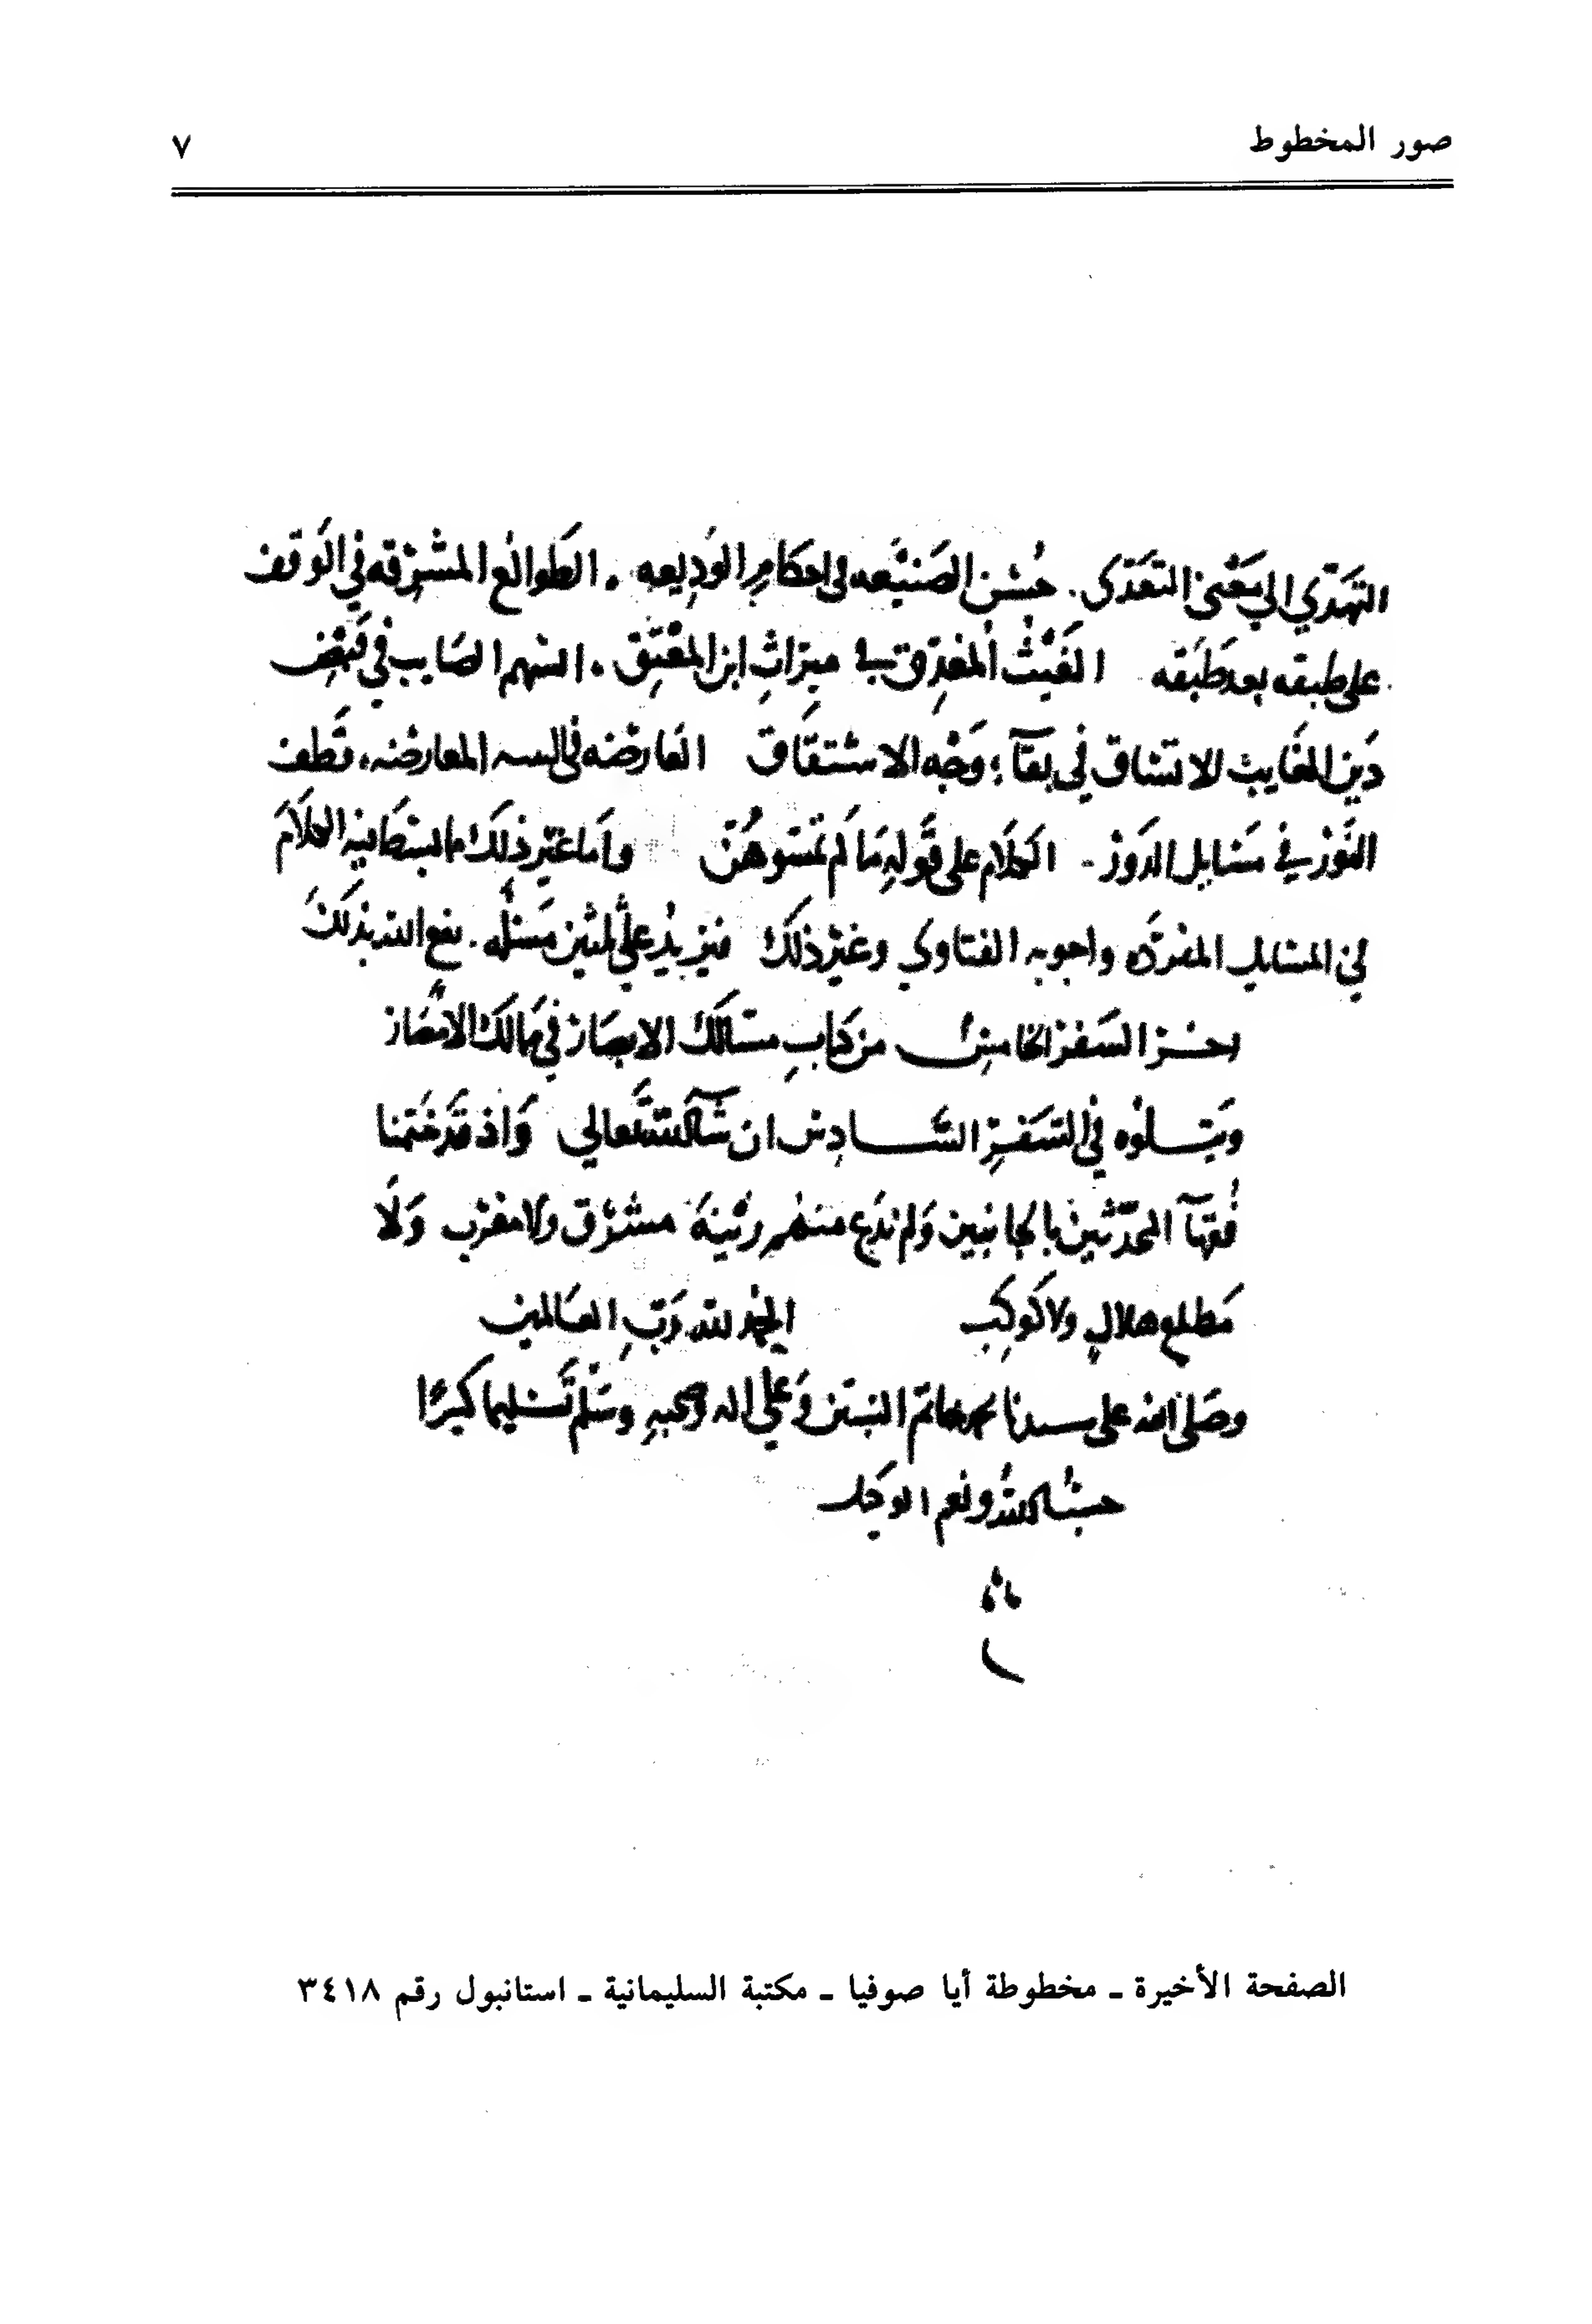 صور المخطوط
٧
التهدّي الي مَعْنى التعَدّى . حُسْن الصَنيْعه في احكامِ الوَدِيعه . الطَوالع المشرقه في الوَقف
على طبقه بعد طَبَقه الغَيْث المغدِق في ميراثِ ابن المعْتِق . السهم الصَايب في قَبْض
دَين الغَايب الاتساق في بقآ وَجْه الاشتقاق العَارضه في البينه المعارضه ، قطف
النَّوْر في مسَايل الدَوْر الكلام على قَوله مَا لم تمسّوهُنّ واما غيْر ذلك ما لسنا الكلام
في المسايل المفرده واجوبه الفتاوي وغيْر ذلك فيزيدُ على مسئله . نفع الله بذلك
اخر السَفر الخامس من كتابِ مسَالك الابصَار في ممالك الامصَار
ويَتلوُه في السَفرِ السَّادِس ان شآ الله تعالي وَاذ قدْ ختمنا
فُقهآ المحدّثين بالجانبين وَلم ندَع منهم ريْبَة مشرق ولا مغرْب وَلَا
مَطلع هلالٍ ولا كوكب الحمد لله رَبِّ العَالمين
وصَلى الله على سيدنا محمد خاتم النبيّين وَعلي اله وصحبهِ وسَلم تَسْليما كثيرًا
حسْبنا الله ونعم الوَكيل
الصفحة الأخيرة ـ مخطوطة أيا صوفيا ـ مكتبة السليمانية ـ استانبول رقم ٣٤١٨